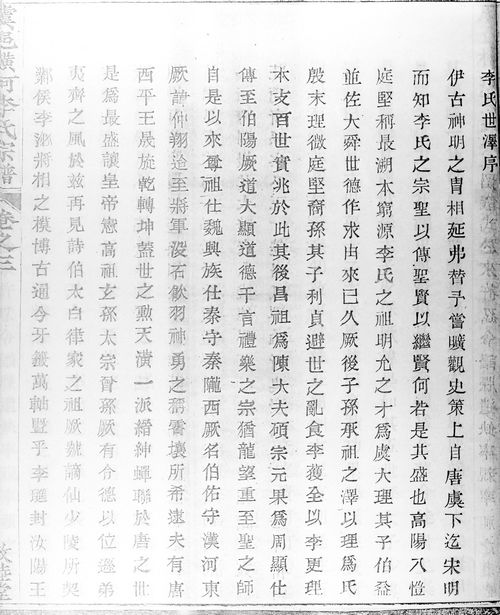 李氏世澤序
伊古神明之胄相延弗替予嘗曠觀史策上自唐虞下迄宋明
而知李氏之宗聖以傳聖賢以繼賢何若是其盛也高陽八愷
庭堅稱最溯本窮源李氏之祖明允之才為虞大理其子伯益
並佐大舜世德作求由來已久厥後子孫承祖之澤以理為氏
殷末理微庭堅裔孫其子利貞避世之亂食李獲全以李更理
本支百世實兆於此其後昌祖為陳大夫碩宗元果為周顯仕
傳至伯陽厥道大顯道德千言禮樂之宗猶龍望重至聖之師
自是以來每祖仕魏興族仕秦守秦隴西厥名伯佑守漢河東
厥諱仲翔迨至將軍沒石飲羽神勇之 雲壤所希逮夫有唐
西平王晟旋乾轉坤蓋世之勲天潢一派縉紳蟬聯於唐之世
是為最盛讓皇帝憲高祖玄孫太宗曾孫厥有令德以位遜弟
夷齊之風於茲再見詩伯太白律家之祖厥號謫仙少陵所契
鄴侯李泌將相之模博古通今牙籤萬軸暨乎李璡封汝陽王
虞邑橫河李氏宗譜
卷之三
敦睦堂